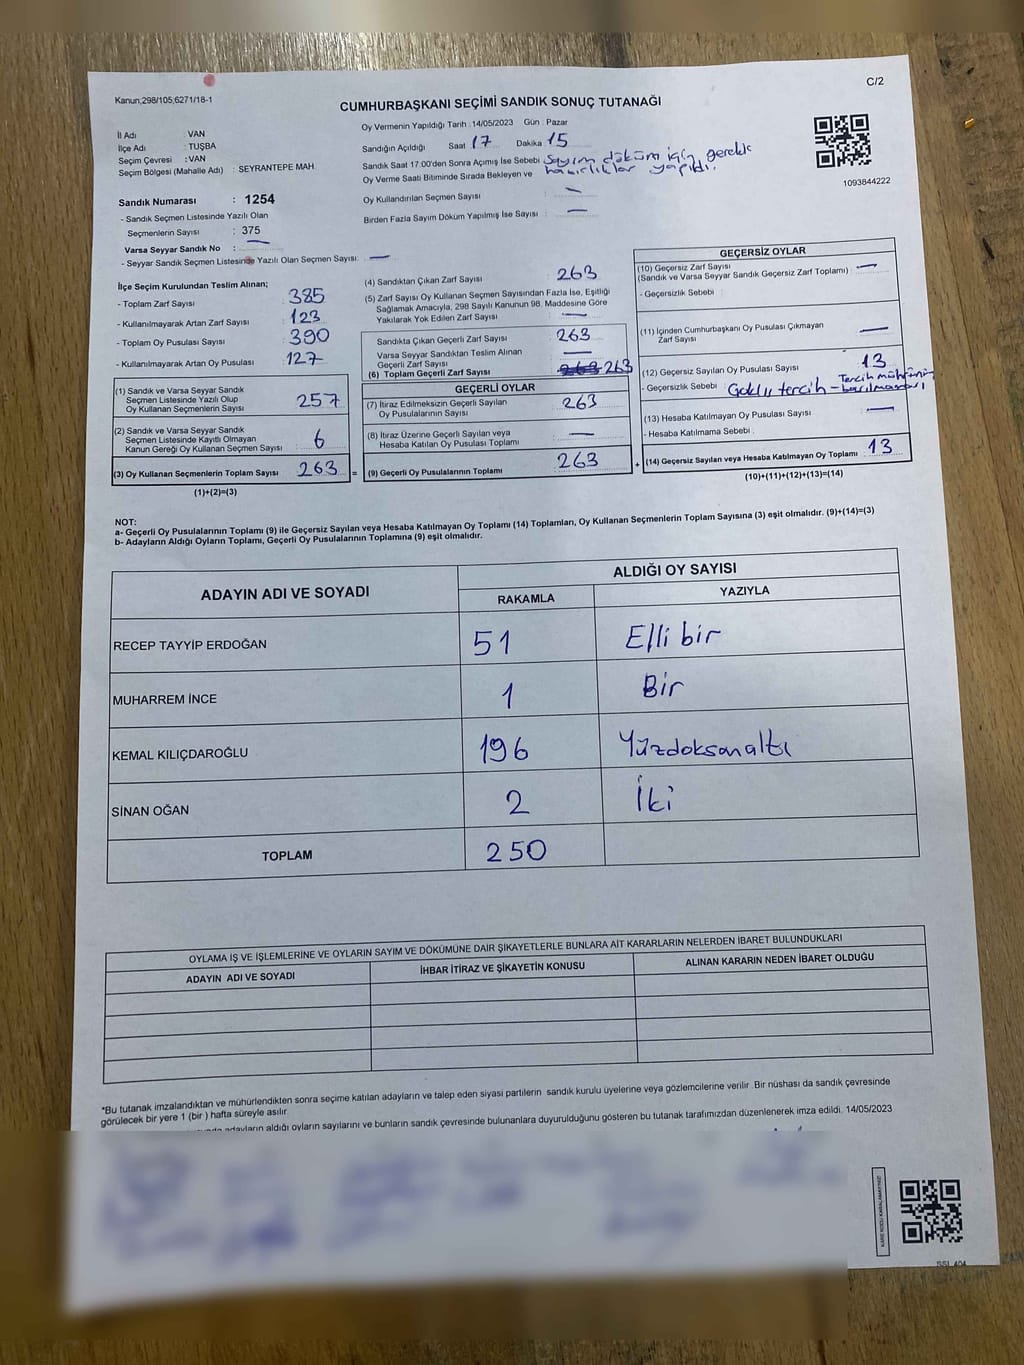 Kanun;298/105;6271/18-1
C/2
CUMHURBAŞKANI SEÇİMİ SANDIK SONUÇ TUTANAĞI
İl Adı : VAN
İlçe Adı : TUŞBA
Seçim Çevresi : VAN
Seçim Bölgesi (Mahalle Adı) : SEYRANTEPE MAH
Sandık Numarası : 1254
- Sandık Seçmen Listesinde Yazılı Olan
Seçmenlerin Sayısı : 375
Varsa Seyyar Sandık No : —
- Seyyar Sandık Seçmen Listesinde Yazılı Olan Seçmen Sayısı: —
Oy Vermenin Yapıldığı Tarih : 14/05/2023 Gün : Pazar
Sandığın Açıldığı Saat 17 Dakika 15
Sandık Saat 17:00'den Sonra Açımış İse Sebebi Sayım döküm için gerekli
hazırlıklar yapıldı.
Oy Verme Saati Bitiminde Sırada Bekleyen ve
Oy Kullandırılan Seçmen Sayısı : —
Birden Fazla Sayım Döküm Yapılmış İse Sayısı : —
1093844222
İlçe Seçim Kurulundan Teslim Alınan;
- Toplam Zarf Sayısı 385
- Kullanılmayarak Artan Zarf Sayısı 123
- Toplam Oy Pusulası Sayısı 390
- Kullanılmayarak Artan Oy Pusulası 127
(1) Sandık ve Varsa Seyyar Sandık
Seçmen Listesinde Yazılı Olup
Oy Kullanan Seçmenlerin Sayısı 257
(2) Sandık ve Varsa Seyyar Sandık
Seçmen Listesinde Kayıtlı Olmayan
Kanun Gereği Oy Kullanan Seçmen Sayısı 6
(3) Oy Kullanan Seçmenlerin Toplam Sayısı 263 =
(1)+(2)=(3)
(4) Sandıktan Çıkan Zarf Sayısı 263
(5) Zarf Sayısı Oy Kullanan Seçmen Sayısından Fazla İse, Eşitliği
Sağlamak Amacıyla, 298 Sayılı Kanunun 98. Maddesine Göre
Yakılarak Yok Edilen Zarf Sayısı —
Sandıkta Çıkan Geçerli Zarf Sayısı 263
Varsa Seyyar Sandıktan Teslim Alınan
Geçerli Zarf Sayısı —
(6) Toplam Geçerli Zarf Sayısı 263 263
GEÇERLİ OYLAR
(7) İtiraz Edilmeksizin Geçerli Sayılan
Oy Pusulalarının Sayısı 263
(8) İtiraz Üzerine Geçerli Sayılan veya
Hesaba Katılan Oy Pusulası Toplamı —
(9) Geçerli Oy Pusulalarının Toplamı 263 +
GEÇERSİZ OYLAR
(10) Geçersiz Zarf Sayısı
(Sandık ve Varsa Seyyar Sandık Geçersiz Zarf Toplamı) : —
- Geçersizlik Sebebi :
(11) İçinden Cumhurbaşkanı Oy Pusulası Çıkmayan
Zarf Sayısı —
(12) Geçersiz Sayılan Oy Pusulası Sayısı 13
- Geçersizlik Sebebi : Çoklu tercih - Tercih mührünün
basılmaması
(13) Hesaba Katılmayan Oy Pusulası Sayısı —
- Hesaba Katılmama Sebebi :
(14) Geçersiz Sayılan veya Hesaba Katılmayan Oy Toplamı 13
(10)+(11)+(12)+(13)=(14)
NOT:
a- Geçerli Oy Pusulalarının Toplamı (9) ile Geçersiz Sayılan veya Hesaba Katılmayan Oy Toplamı (14) Toplamları, Oy Kullanan Seçmenlerin Toplam Sayısına (3) eşit olmalıdır. (9)+(14)=(3)
b- Adayların Aldığı Oyların Toplamı, Geçerli Oy Pusulalarının Toplamına (9) eşit olmalıdır.
ADAYIN ADI VE SOYADI ALDIĞI OY SAYISI
RAKAMLA YAZIYLA
RECEP TAYYİP ERDOĞAN 51 Elli bir
MUHARREM İNCE 1 Bir
KEMAL KILIÇDAROĞLU 196 Yüzdoksanaltı
SİNAN OĞAN 2 İki
TOPLAM 250
OYLAMA İŞ VE İŞLEMLERİNE VE OYLARIN SAYIM VE DÖKÜMÜNE DAİR ŞİKAYETLERLE BUNLARA AİT KARARLARIN NELERDEN İBARET BULUNDUKLARI
ADAYIN ADI VE SOYADI İHBAR İTİRAZ VE ŞİKAYETİN KONUSU ALINAN KARARIN NEDEN İBARET OLDUĞU
*Bu tutanak imzalandıktan ve mühürlendikten sonra seçime katılan adayların ve talep eden siyasi partilerin sandık kurulu üyelerine veya gözlemcilerine verilir. Bir nüshası da sandık çevresinde
görülecek bir yere 1 (bir ) hafta süreyle asılır.
adayların aldığı oyların sayılarını ve bunların sandık çevresinde bulunanlara duyurulduğunu gösteren bu tutanak tarafımızdan düzenlenerek imza edildi. 14/05/2023
KARE KODU KARALAMAYINIZ!